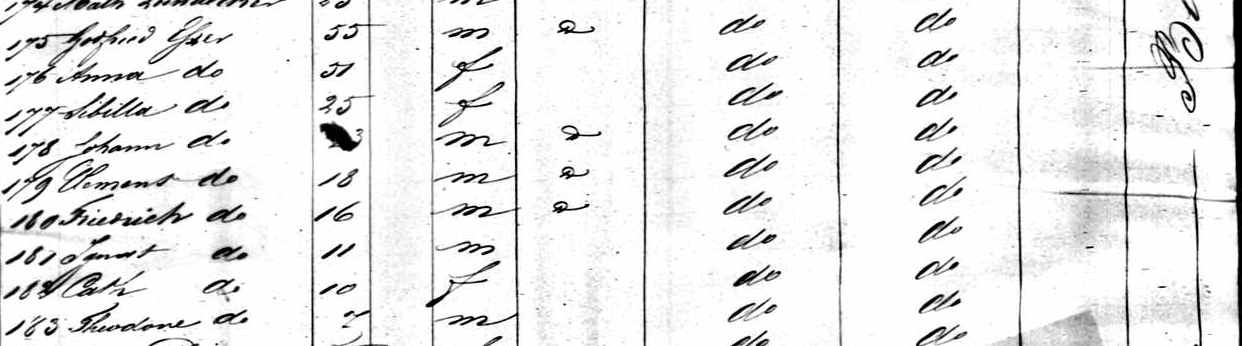 175 Gottfried Esser 55 m do do do
176 Anna do 51 f do do
177 Sibilla do 25 f do do
178 Johann do m do do do
179 Clemens do 18 m do do do
180 Friedrich do 16 m do do do
181 Ignat do 11 m do do
182 Cath do 10 f do do
183 Theodore do 7 m do do